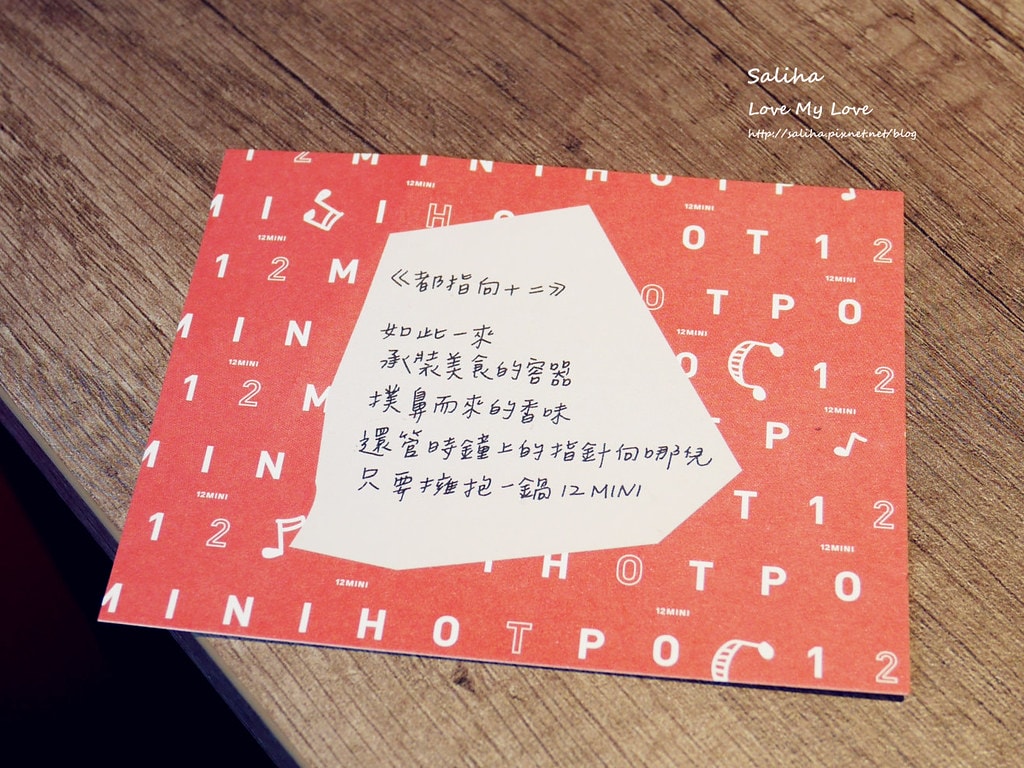 Saliha
Love My Love
http://saliha.pixnet.net/blog
12MINIHOTP
12MINI
12MINI
MINIHO
OT12
12MINI
12MINI
12M
OTPO
MINI
12MINI
12MINI
O12
12M
12MINI
P
MINI
12MINI
T12
12
12MINI
IHOTPO
12MINI
12MINI
MINIHOTPO12
《都指向十二》
如此一來
承裝美食的容器
撲鼻而來的香味
還管時鐘上的指針向哪兒
只要擁抱一鍋12MINI